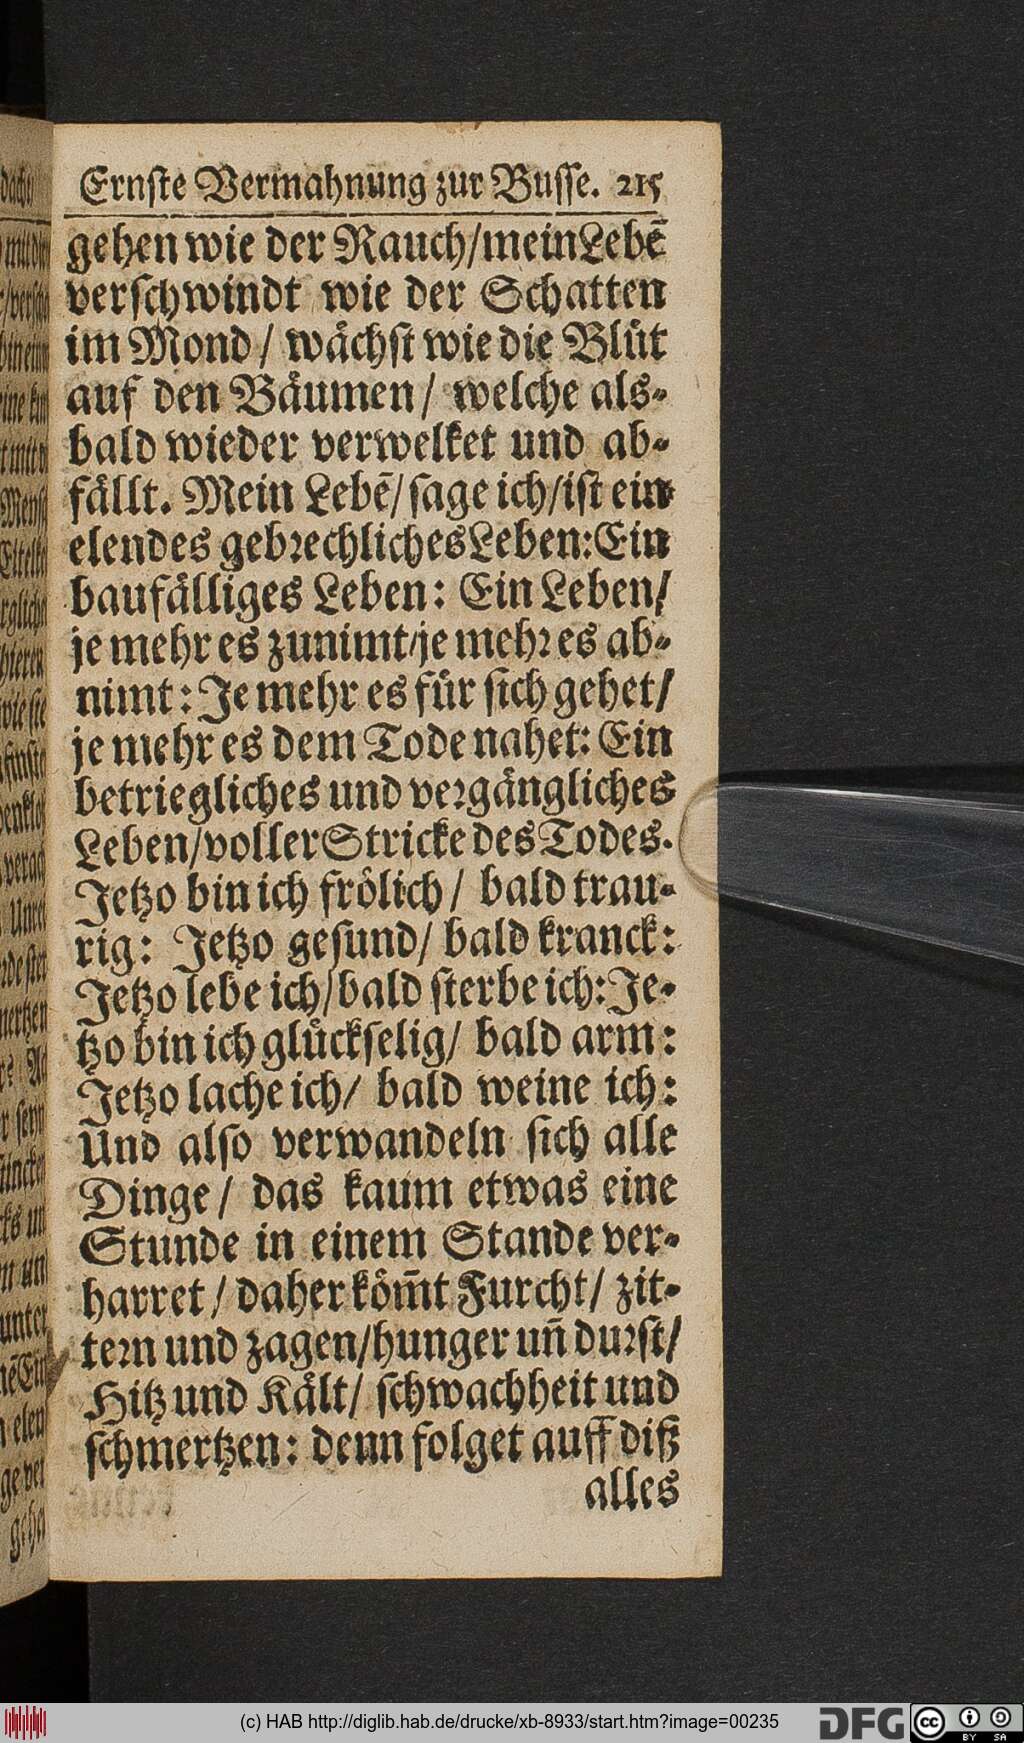 Ernste Vermahnung zur Busse. 215
gehen wie der Rauch/mein Lebē
verschwindt wie der Schatten
im Mond/ wächst wie die Blüt
auf den Bäumen/ welche als-
bald wieder verwelket und ab-
fällt. Mein Lebē/sage ich/ist ein
elendes gebrechliches Leben: Ein
baufälliges Leben: Ein Leben/
je mehr es zunimt/je mehr es ab-
nimt: Je mehr es für sich gehet/
je mehr es dem Tode nahet: Ein
betriegliches und vergängliches
Leben/voller Stricke des Todes.
Jetzo bin ich frölich/ bald trau-
rig: Jetzo gesund/ bald kranck:
Jetzo lebe ich/bald sterbe ich: Je-
tzo bin ich glückselig/ bald arm:
Jetzo lache ich/ bald weine ich:
Und also verwandeln sich alle
Dinge/ das kaum etwas eine
Stunde in einem Stande ver-
harret/ daher köm̄t Furcht/ zit-
tern und zagen/hunger un̄ durst/
Hitz und Kält/ schwachheit und
schmertzen: denn folget auff diß
alles
(c) HAB http://diglib.hab.de/drucke/xb-8933/start.htm?image=00235
DFG
cc BY SA